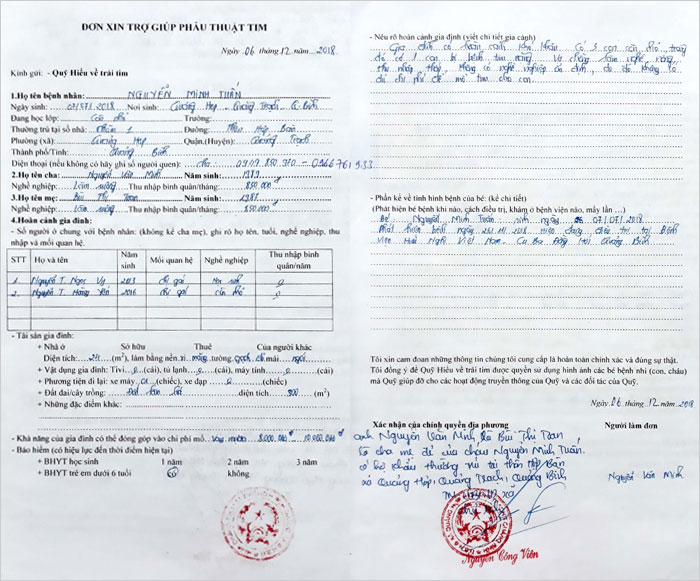 ĐƠN XIN TRỢ GIÚP PHẪU THUẬT TIM
Ngày 06 tháng 12 năm 2018
Kính gửi: - Quỹ Hiểu về trái tim
1.Họ tên bệnh nhân: NGUYỄN MINH TUẤN
Ngày sinh: 07/07/2018 Nơi sinh: Quảng Hợp - Quảng Trạch - Q. Bình
Đang học lớp: Còn nhỏ Trường:
Thường trú tại số nhà: Đường:
Phường (xã): Quảng Hợp Quận.(Huyện): Quảng Trạch
Thành phố/Tỉnh: Quảng Bình
Điện thoại (nếu không có hãy ghi số người quen):
2.Họ tên cha: Nguyễn Văn Minh Năm sinh: 1979
Nghề nghiệp: Làm ruộng Thu nhập bình quân/tháng: 850.000đ
3.Họ tên mẹ: Bùi Thị Năm sinh: 1981
Nghề nghiệp: Làm ruộng Thu nhập bình quân/tháng: 850.000đ
4.Hoàn cảnh gia đình:
- Số người ở chung với bệnh nhân: (không kể cha mẹ), ghi rõ họ tên, tuổi, nghề nghiệp, thu
nhập và mối quan hệ.
STT Họ và tên Năm sinh Mối quan hệ Nghề nghiệp Thu nhập bình quân/năm
1. Nguyễn T. Ngọc Vy 2013 chị gái Học sinh 0
2. Nguyễn T. Hoàng Yến 2016 chị gái còn nhỏ 0
- Tài sản gia đình:
+ Nhà ở Sở hữu Thuê Của người khác
Diện tích: 24 (m²), làm bằng nền xi măng tường gạch mái ngói
+ Vật dụng gia đình: Tivi 0 (cái), tủ lạnh 0 (cái), máy tính 0 (cái)
+ Phương tiện đi lại: xe máy 01 (chiếc), xe đạp 0 (chiếc)
+ Đất đai/cây trồng: diện tích 300 (m²)
+ Những đặc điểm khác:
- Khả năng của gia đình có thể đóng góp vào chi phí mổ: 8.000.000đ - 10.000.000đ
- Bảo hiểm (có hiệu lực đến thời điểm hiện tại)
+ BHYT học sinh 1 năm 2 năm 3 năm
+ BHYT trẻ em dưới 6 tuổi có không
- Nêu rõ hoàn cảnh gia định (viết chi tiết gia cảnh)
Gia đình có hoàn cảnh khó khăn. Có 3 con còn nhỏ, trong
đó có 1 con bị bệnh tim nặng. Vợ chồng làm nghề nông,
thu nhập thấp, không có nghề nghiệp ổn định, do đó không có
đủ chi phí để mổ tim cho con.
- Phần kể về tình hình bệnh của bé: (kể chi tiết)
(Phát hiện bé bệnh khi nào, cách điều trị, khám ở bệnh viện nào, mấy lần …)
Bé Nguyễn Minh Tuấn sinh ngày 07/07/2018
Phát hiện bệnh ngày 2018 Hiện đang điều trị tại Bệnh
Viện Hữu Nghị Việt Nam - Cu Ba Đồng Hới Quảng Bình
Tôi xin cam đoan những thông tin chúng tôi cung cấp là hoàn toàn chính xác và đúng sự thật.
Tôi đồng ý để Quỹ Hiểu về trái tim được quyền sử dụng hình ảnh các bé bệnh nhi (con, cháu)
mà Quỹ giúp đỡ cho các hoạt động truyền thông của Quỹ và các đối tác của Quỹ.
Ngày 06 tháng 12 năm 2018
Xác nhận của chính quyền địa phương Người làm đơn
anh Nguyễn Văn Minh, bà Bùi Thị
là cha mẹ đẻ của cháu Nguyễn Minh Tuấn.
có hộ khẩu thường trú tại thôn
xã Quảng Hợp, Quảng Trạch, Quảng Bình
Nguyễn Văn Minh
Nguyễn Công Viên